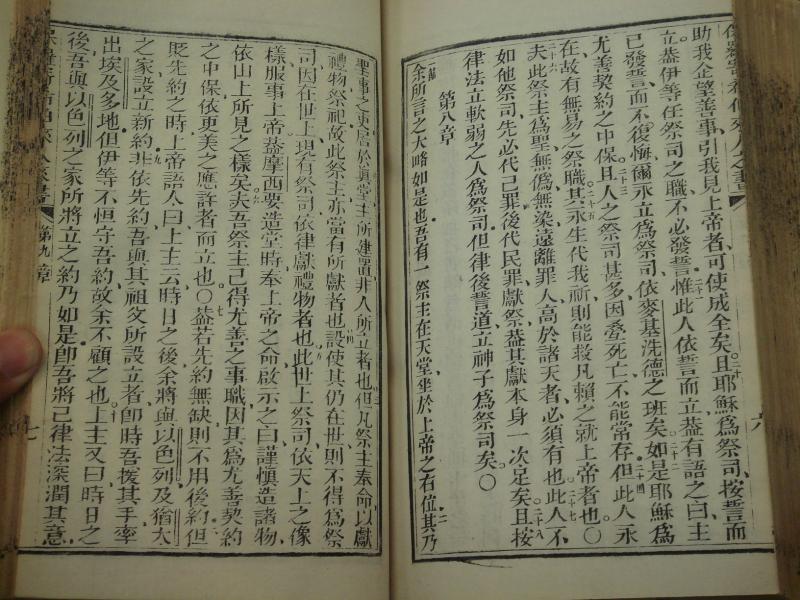 助我企望善事引我見上帝者可使成全矣且耶穌為祭司按誓而
立蓋伊等任祭司之職不必發誓惟此人依誓而立蓋有語之曰主
已發誓而不復悔爾永立為祭司依麥基洗德之班矣如是耶穌為
尤善契約之中保且人之祭司甚多因爲死亡不能常存但此人永
在故有無易之祭職其永生代我祈則能救凡賴之就上帝者也〇
夫此祭主為聖無偽無染遠離罪人高於諸天者必須有也此人不
如他祭司先必代己罪後代民罪獻祭蓋其獻本身一次足矣且按
律法立軟弱之人為祭司但律後誓道立神子為祭司矣〇
第八章
余所言之大略如是也吾有一祭主在天堂坐於上帝之右位其乃
聖事之吏
於眞堂主所建置非人所立者也但凡祭主奉命以獻
禮物祭祀故此祭主亦當有所獻者也設使其仍在世則不得為祭
司因在世上現有祭司依律獻禮物者也此世上祭司依天上之像
樣服事上帝蓋摩西要造堂時奉上帝之命啟示之曰謹慎造諸物
依山上所見之樣矣夫吾祭主已得尤善之事職因其為尤善契約
之中保依更美之應許者而立也〇蓋若先約無缺則不用後約但
貶先約之時上帝語人曰上主云時日之後余將與以色列及猶太
之家設立新約非依先約吾與其祖父所設立者卽時吾援其手率
出埃及多地但伊等不恒守吾約故余不顧之也上主又曰時日之
後吾與以色列之家所將立之約乃如是卽吾將己律法深潤其意
第九章
七